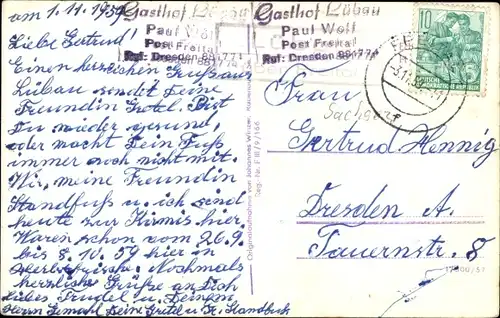 am 1.11.1959
Gasthof Lübau
Paul Wolf
Post Freital
Ruf: Dresden 88 77 1
Gasthof Lübau
Paul Wolf
Post Freital
Ruf: Dresden 88 77 1
10
DEUTSCHE
DEMOKRATISCHE REPUBLIK
Liebe Gertrud!
Einen herzlichen Gruß aus
Lübau sendet Deine
Freundin Gretel. Bist
Du wieder gesund,
oder macht Dein Fuß
immer noch nicht mit.
Wir, meine Freundin
Standfuß u. ich sind
heute zur Kirmis hier.
Waren schon vom 26.9.
bis 8.10.59 hier in
Nochmals
herzliche Grüße an Dich
liebes Trudel u. Deinen
Herrn Gemahl Deine Gretel u. Fr. Standfuß
Originalaufnahme von Johannes Winkler
Reg.-Nr. F III/9/166
Frau
Gertrud Hennig
Dresden A.
Tauernstr. 8